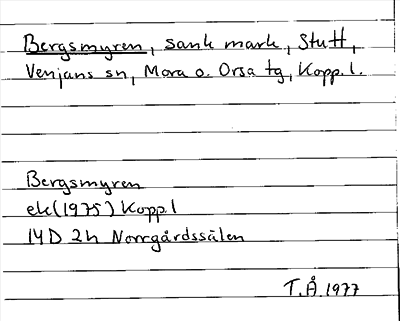 Bergsmyren, sank mark, Stutt,
Venjans sn, Mora o. Orsa tg, Kopp. l.
Bergsmyren
ek (1975) Kopp l
14D 2h Norrgårdssälen
T.Å. 1977